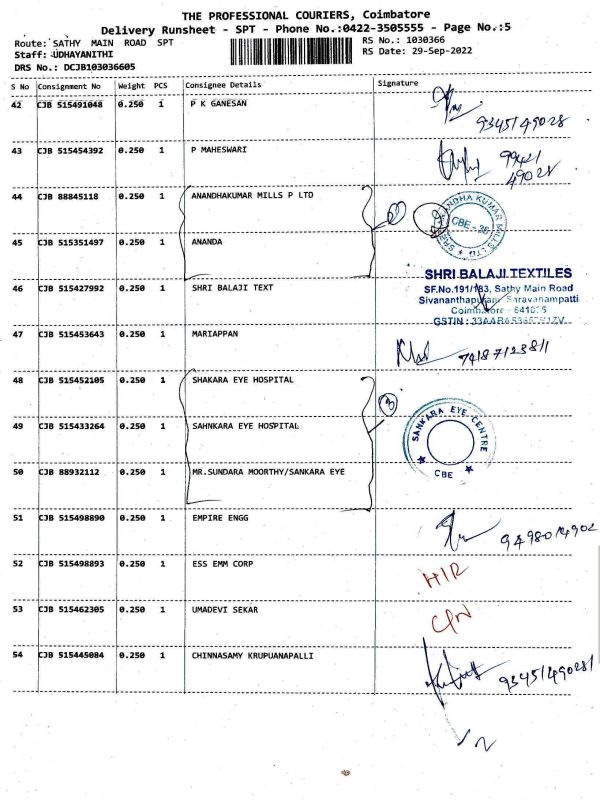 THE PROFESSIONAL COURIERS, Coimbatore
Delivery Runsheet - SPT - Phone No.:0422-3505555 - Page No.:5
Route: SATHY MAIN ROAD SPT
RS No.: 1030366
Staff: UDHAYANITHI
RS Date: 29-Sep-2022
DRS No.: DCJB103036605
S No Consignment No Weight PCS Consignee Details Signature
42 CJB 515491048 0.250 1 P K GANESAN
9345149028
43 CJB 515454392 0.250 1 P MAHESWARI 99421
49028
44 CJB 88845118 0.250 1 ANANDHAKUMAR MILLS P LTD
CBE - 35
45 CJB 515351497 0.250 1 ANANDA
SHRI BALAJI TEXTILES
46 CJB 515427992 0.250 1 SHRI BALAJI TEXT SF.No.191/183, Sathy Main Road
Sivananthapuram, Saravanampatti
GSTIN :
47 CJB 515453643 0.250 1 MARIAPPAN
7418712381
48 CJB 515452105 0.250 1 SHAKARA EYE HOSPITAL
3
49 CJB 515433264 0.250 1 SAHNKARA EYE HOSPITAL SANKARA EYE CENTRE
50 CJB 88932112 0.250 1 MR.SUNDARA MOORTHY/SANKARA EYE CBE
51 CJB 515498890 0.250 1 EMPIRE ENGG
9498014902
52 CJB 515498893 0.250 1 ESS EMM CORP
53 CJB 515462305 0.250 1 UMADEVI SEKAR
54 CJB 515445084 0.250 1 CHINNASAMY KRUPUANAPALLI